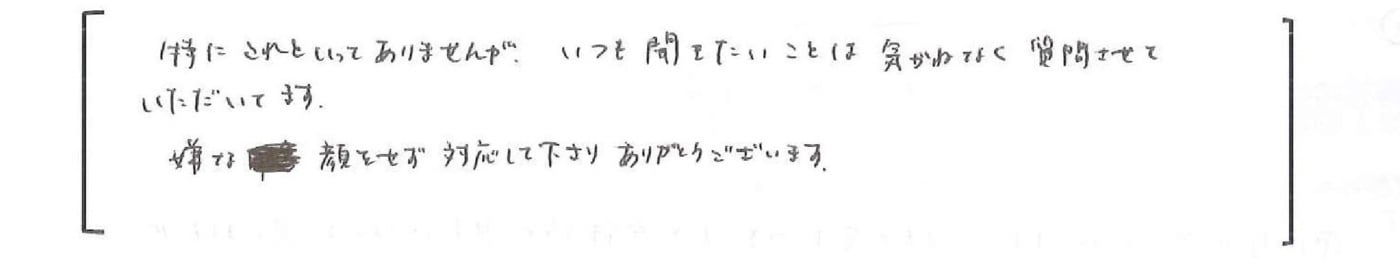 特にこれといってありませんが、いつも聞きたいことは気がねなく質問させて
いただいてます。
嫌な顔をせず対応して下さりありがとうございます。